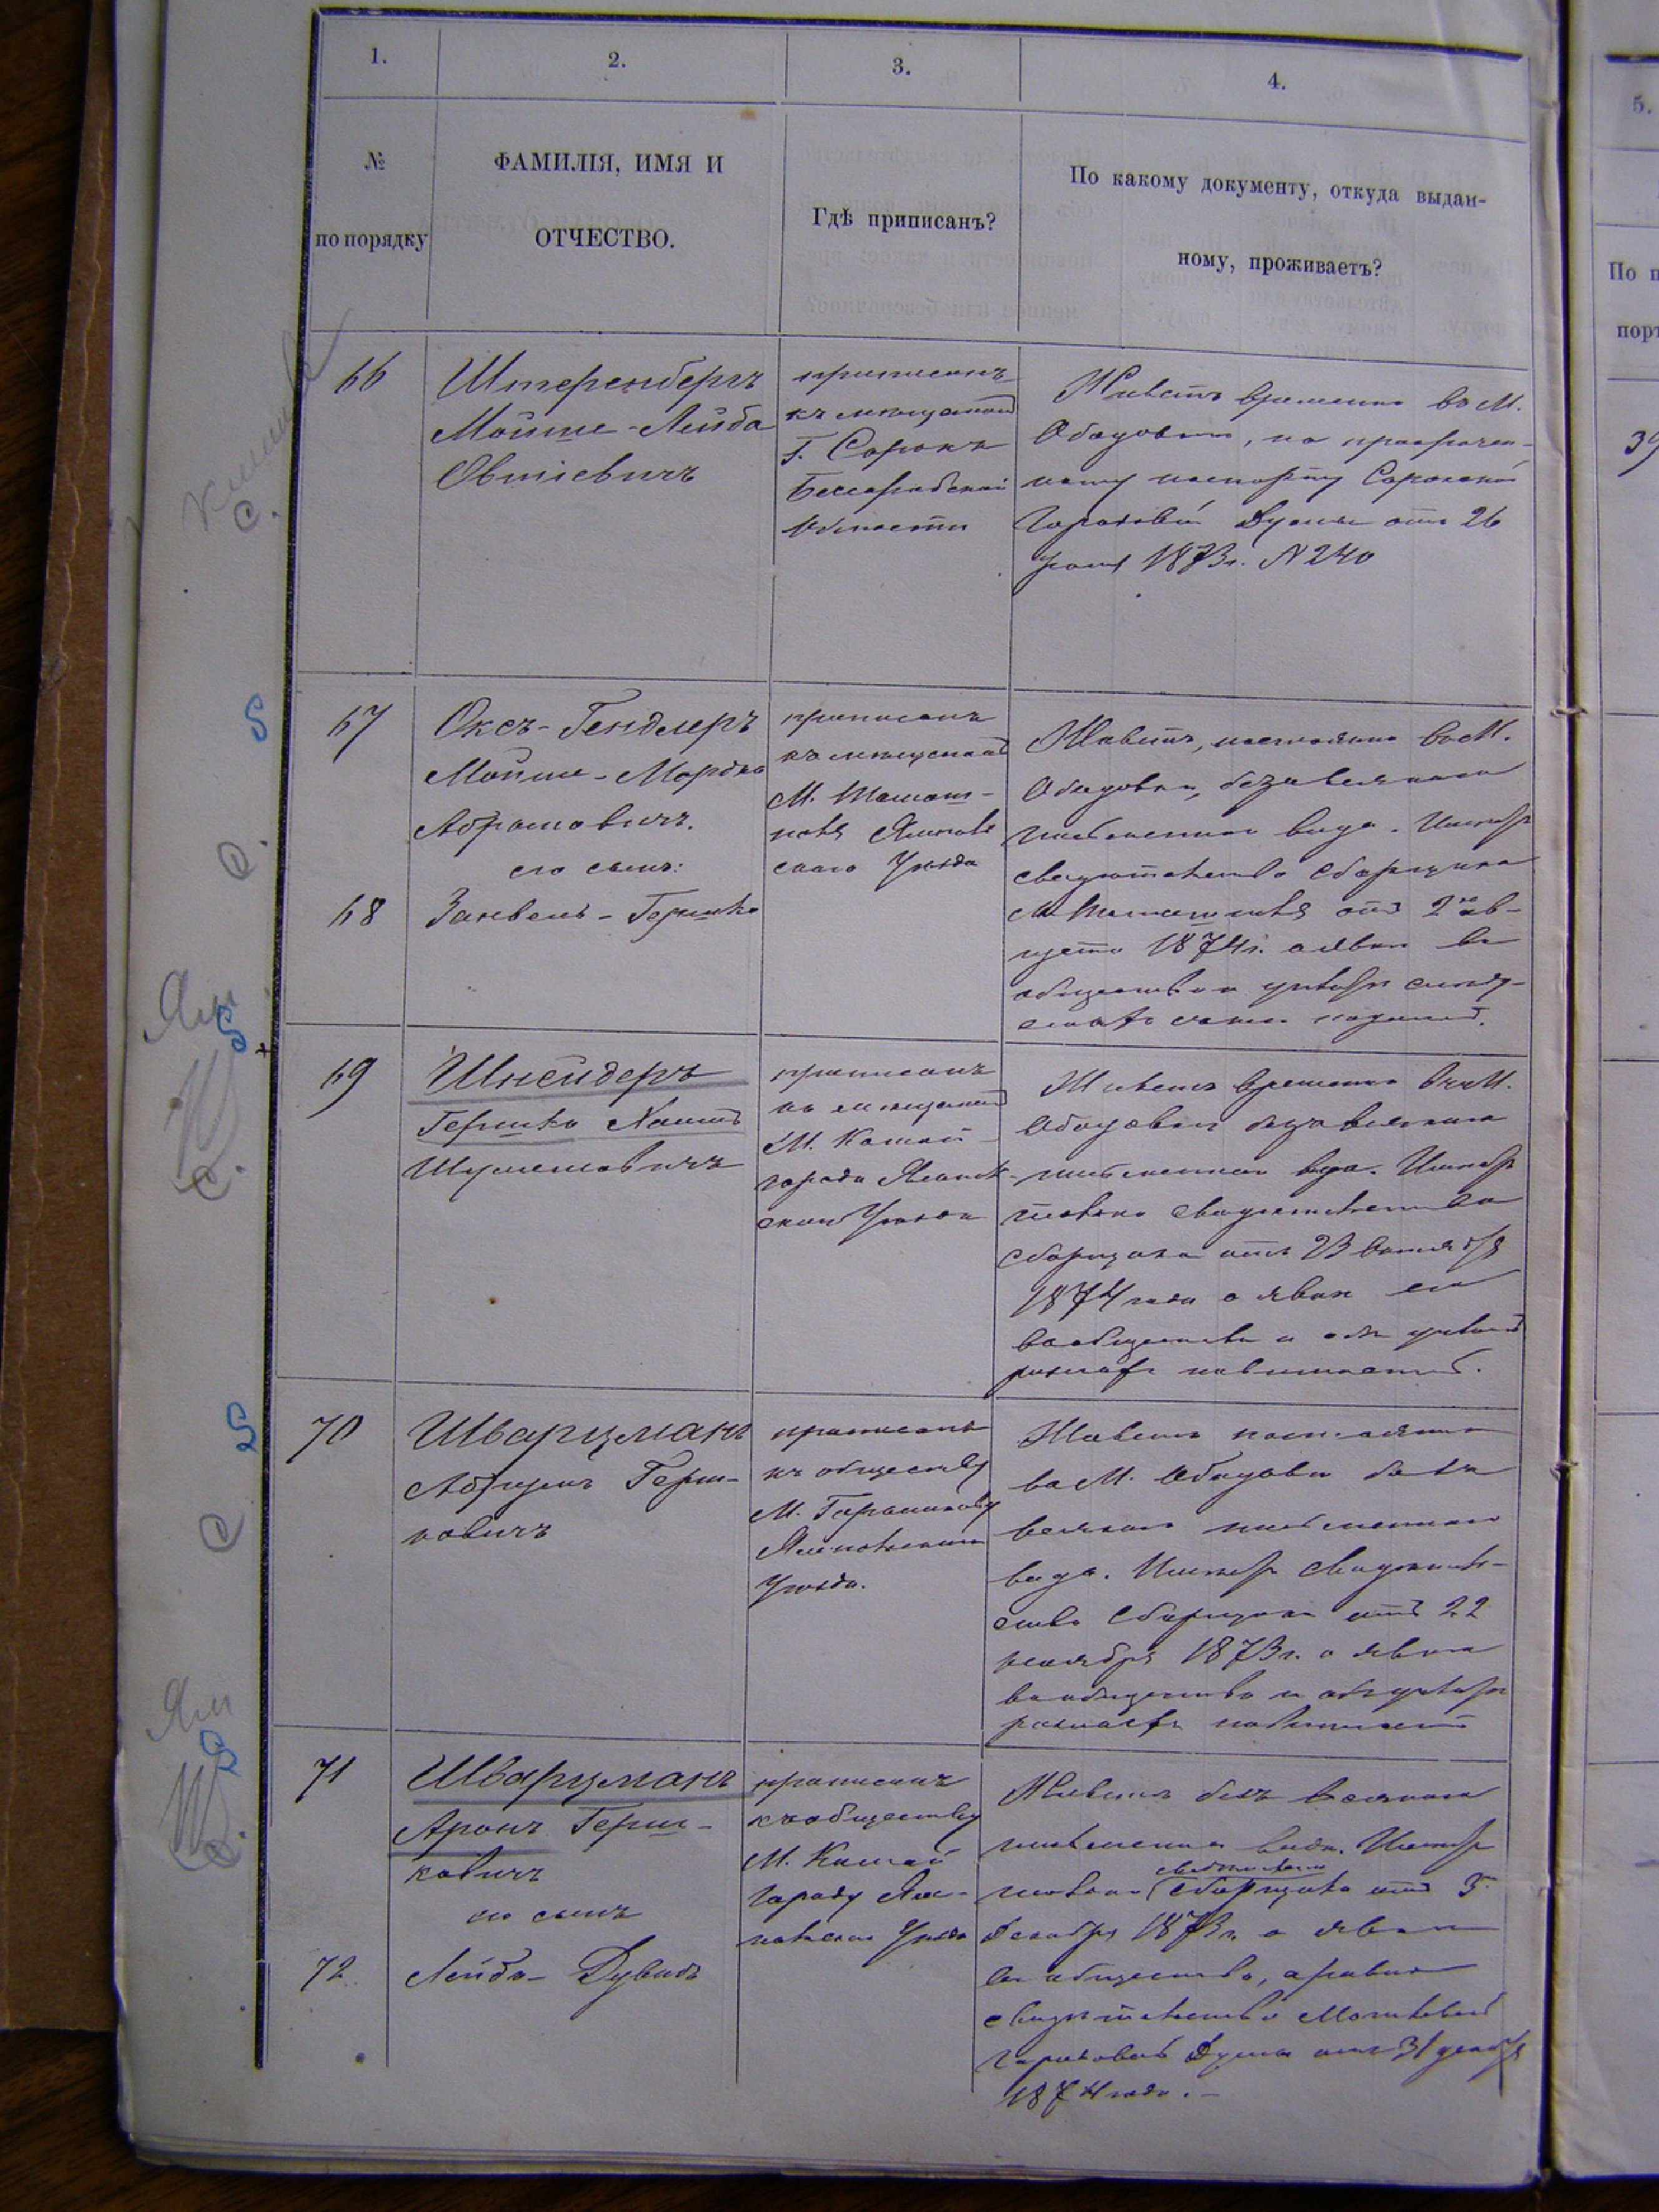 1.
2.
3.
4.
№
по порядку
ФАМИЛІЯ, ИМЯ И
ОТЧЕСТВО.
Гдѣ приписанъ?
По какому документу, откуда выдан-
ному, проживаетъ?
5.
По п
порт
39
66
Штеренбергъ
Мойше-Лейба
Овшіевичъ
приписанъ
къ мѣщанамъ
Г. Сорокъ
Бессарабской
области
Живетъ временно во М.
Ободовкѣ, по просрочен-
ному паспорту Сорокской
Городовой Думы отъ 26
1873г. № 240
67
Оксъ-Гендлеръ
Мойше-Мордко
Абрамовичъ.
его сынъ:
68
Занвель-Гершко
приписанъ
къ мѣщанамъ
М. Томаш-
поля Ямполь
скаго Уѣзда
Живетъ, постоянно во М.
Ободовкѣ, безъ всякаго
письменнаго вида. Имѣетъ
свидѣтельство сборщика
М. Томашполя отъ 2го ав-
густа 1874г. о явкѣ въ
общество и
69
Шнейдеръ
Гершко Хаимъ
Шулимовичъ
приписанъ
къ мѣщанамъ
М. Камен
города Ямполь
скаго Уѣзда
Живетъ временно въ М.
Ободовкѣ безъ всякаго
письменнаго вида. Имѣетъ
только свидѣтельство
сборщика отъ 23 октября
1874 года о явкѣ его
въ общество и объ
повинностей.
70
Шварцманъ
Герш-
ковичъ
приписанъ
къ обществу
М.
Ямпольскаго
Уѣзда.
Живетъ постоянно
во М. Ободовкѣ безъ
всякаго письменнаго
вида. Имѣетъ свидѣтель-
ство сборщика отъ 22
1873г. о явкѣ
въ общество и объ
повинностей
71
Шварцманъ
Аронъ Герш-
ковичъ
его сынъ
72
Лейба-Дувидъ
приписанъ
къ обществу
М. Камен
городу Ям-
польскаго Уѣзда
Живетъ безъ всякаго
письменнаго вида. Имѣетъ
свидѣтельство
только сборщика отъ 5
декабря 1873г. о явкѣ
въ общество, а равно
свидѣтельство
Городовой Думы отъ 31 декабря
1874 года.
Ям
С.
Ям